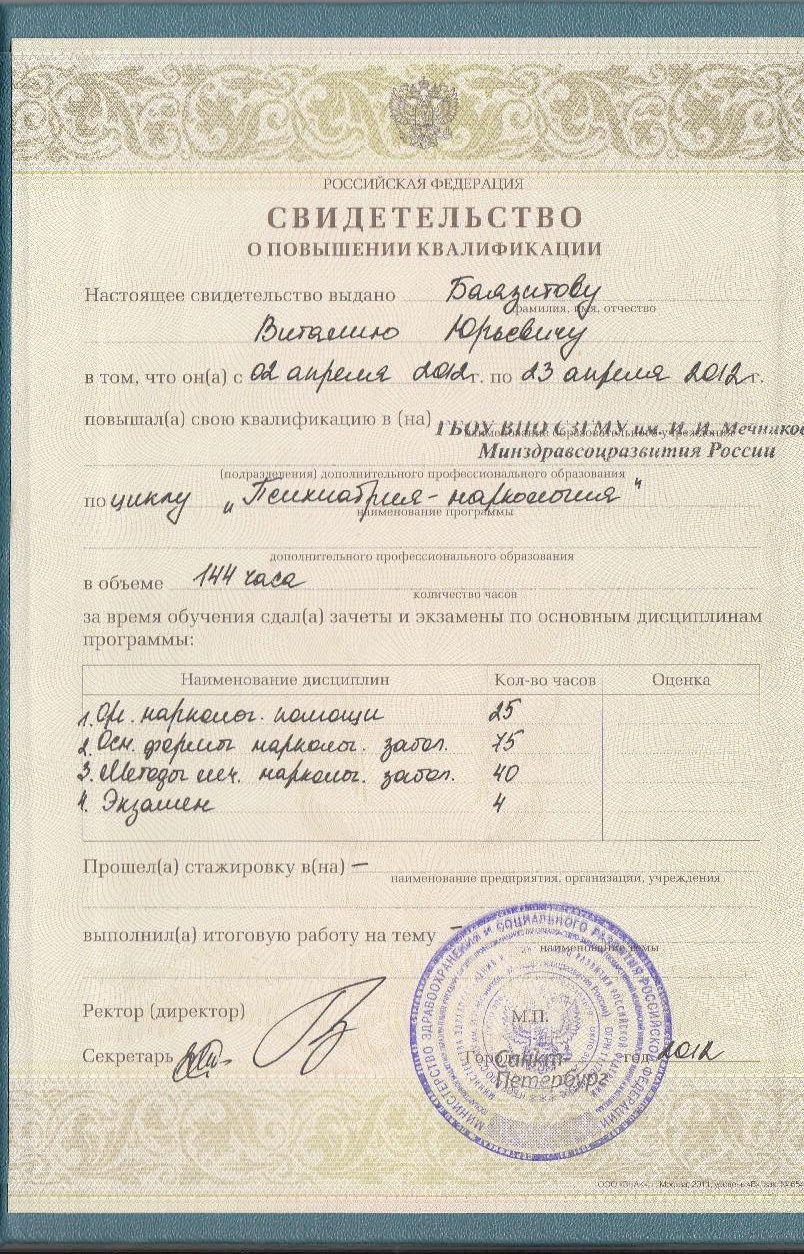 РОССИЙСКАЯ ФЕДЕРАЦИЯ
СВИДЕТЕЛЬСТВО
О ПОВЫШЕНИИ КВАЛИФИКАЦИИ
Настоящее свидетельство выдано Баязитову
фамилия, имя, отчество
Виталию Юрьевичу
в том, что он(а) с 02 апреля 2012 г. по 23 апреля 2012 г.
повышал(а) свою квалификацию в (на) ГБОУ ВПО СЗГМУ им. И. И. Мечников
наименование образовательного учреждения
Минздравсоцразвития России
(подразделения) дополнительного профессионального образования
по циклу „Психиатрия-наркология"
наименование программы
дополнительного профессионального образования
в объеме 144 часа
количество часов
за время обучения сдал(а) зачеты и экзамены по основным дисциплинам
программы:
Наименование дисциплин Кол-во часов Оценка
1. Ор. нарколог. помощи 25
2. Осн. формы нарколог. забол. 75
3. Методы леч. нарколог. забол. 40
4. Экзамен 4
Прошел(а) стажировку в(на) —
наименование предприятия, организации, учреждения
выполнил(а) итоговую работу на тему —
наименование темы
МИНИСТЕРСТВО ЗДРАВООХРАНЕНИЯ И СОЦИАЛЬНОГО РАЗВИТИЯ РОССИЙСКОЙ ФЕДЕРАЦИИ
Ректор (директор)
М.П.
Секретарь
Город Санкт-Петербург год 2012